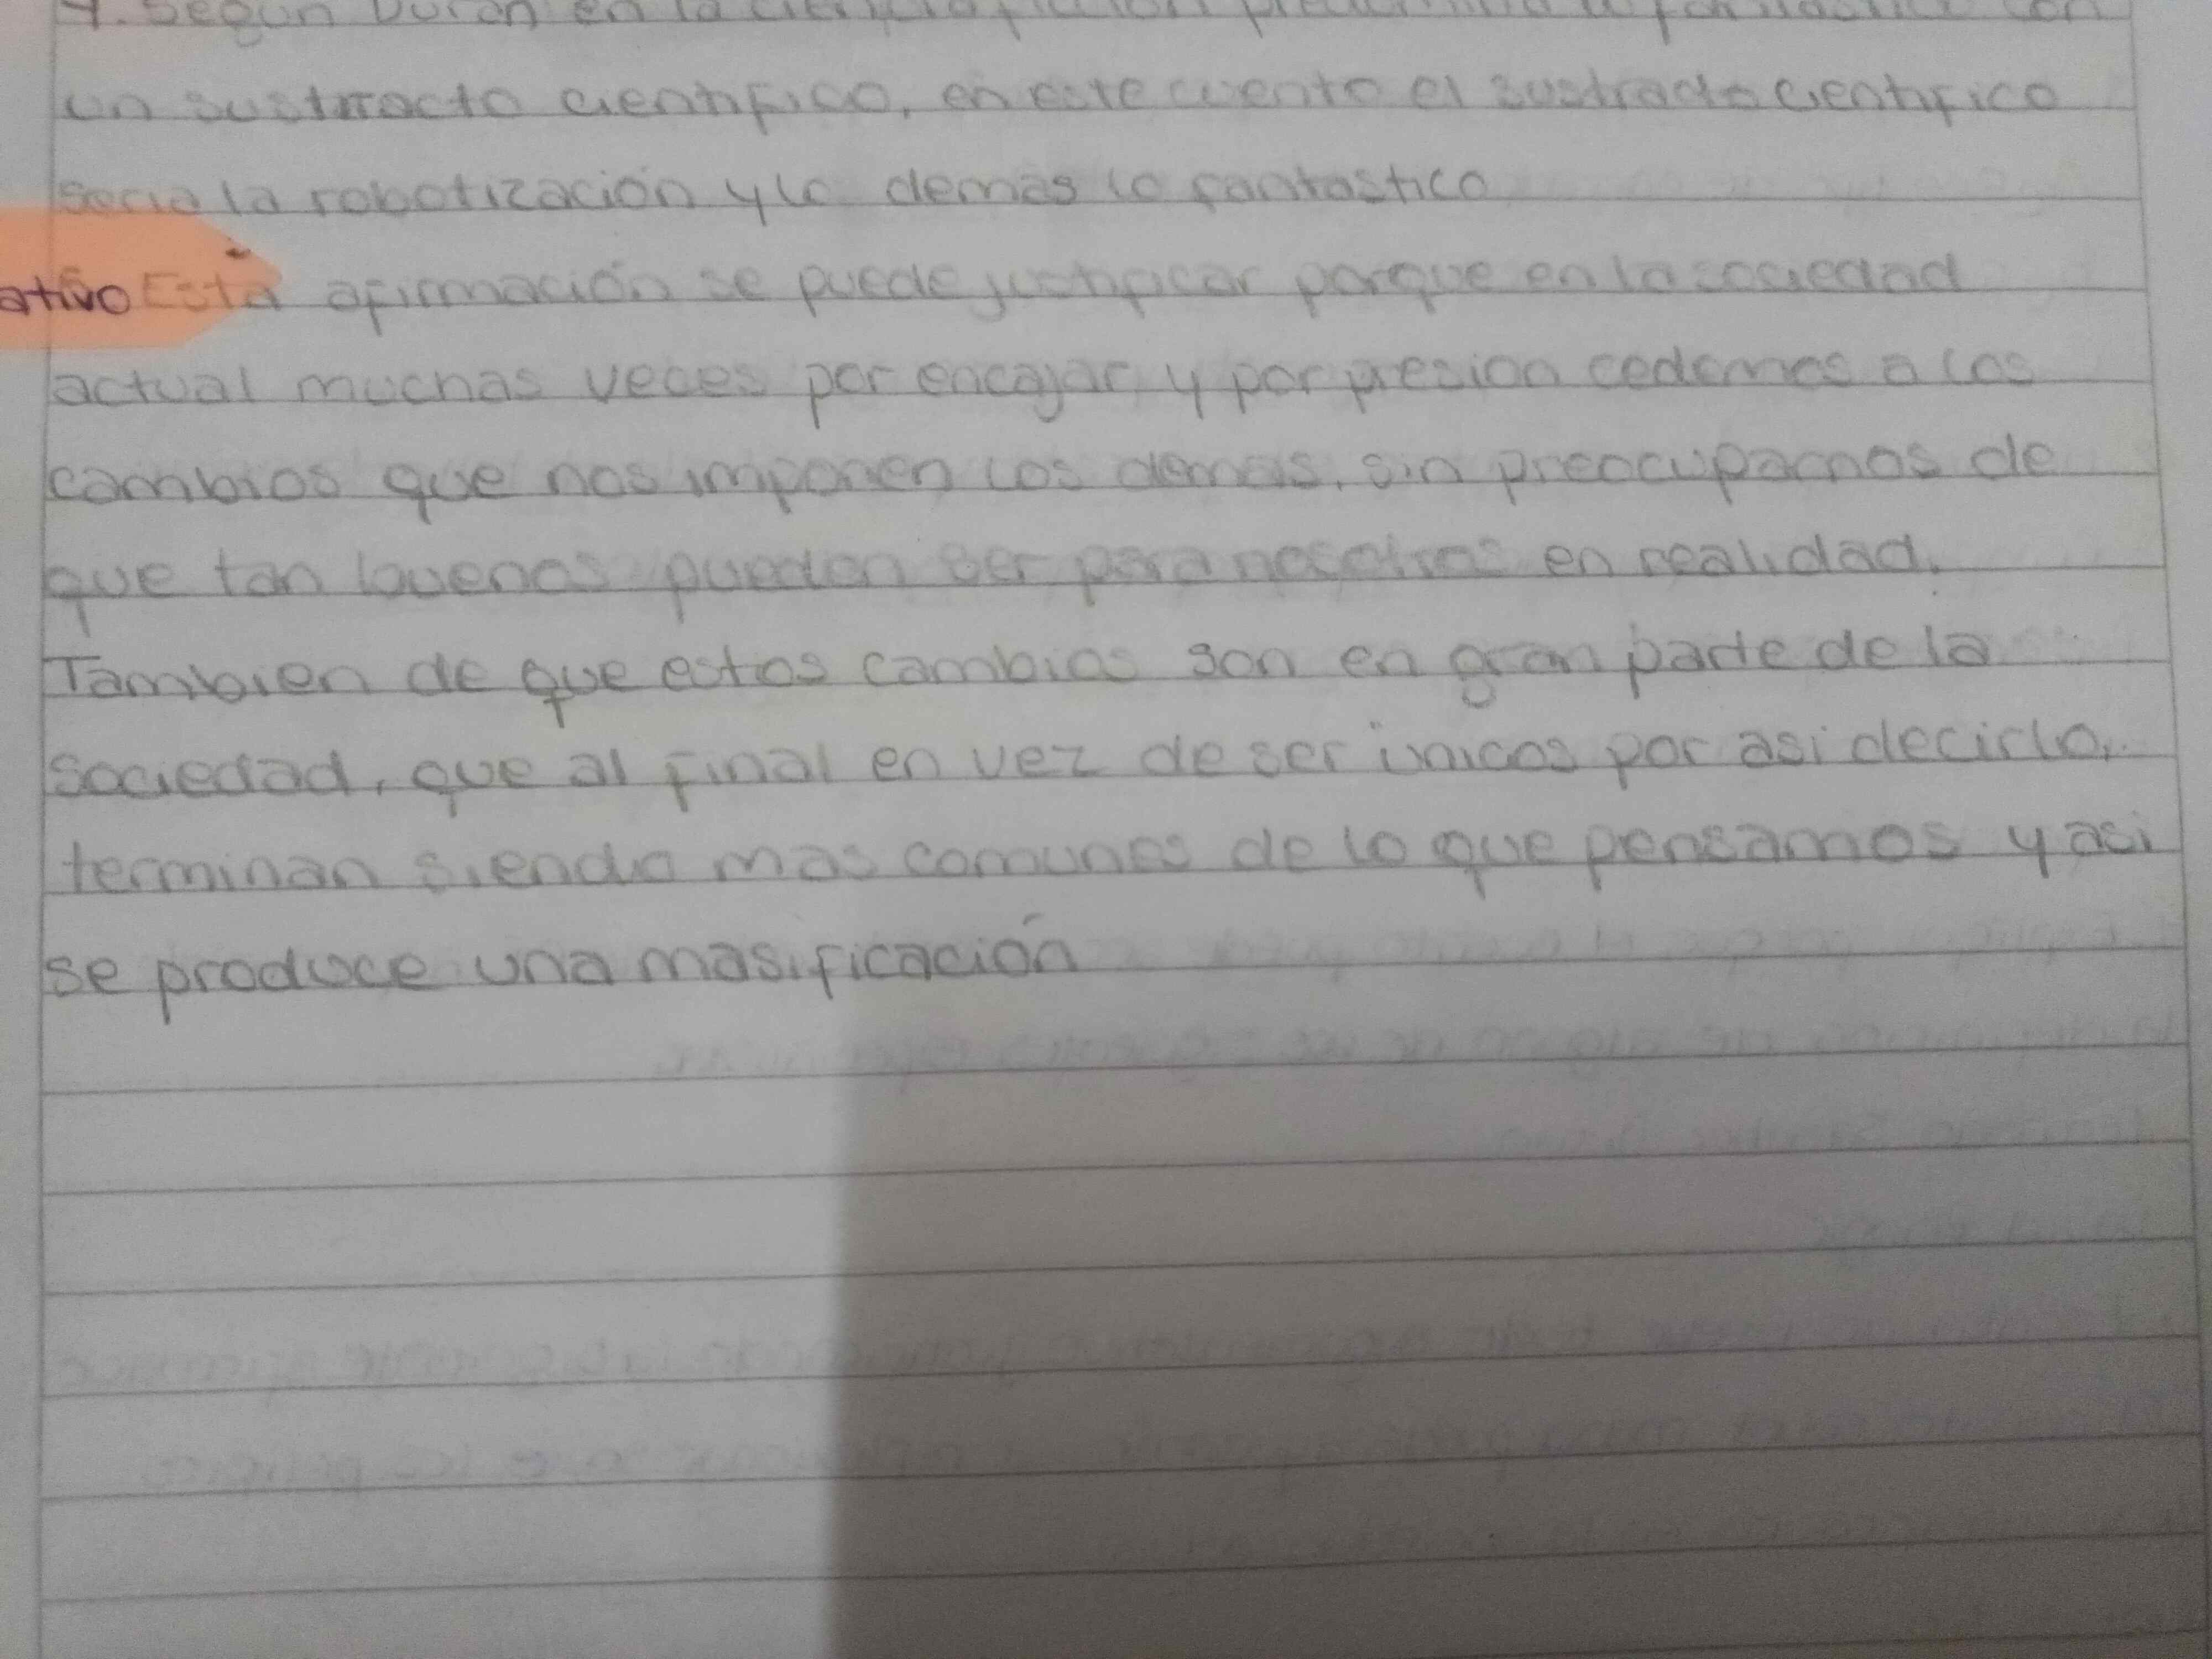 4. Según Durán en la ciencia ficción predomina lo fantástico con
un sustracto cientifico, en este cuento el sustracto cientifico
seria la robotización y lo demás lo fantastico
ativo Esta afirmación se puede justificar porque en la sociedad
actual muchas veces por encajar y por presion cedemos a los
cambios que nos imponen los demas, sin preocuparnos de
que tan buenos pueden ser para nosotros en realidad.
Tambien de que estos cambios son en gran parte de la
sociedad, que al final en vez de ser unicos por asi decirlo,
terminan siendo mas comunes de lo que pensamos y asi
se produce una masificación